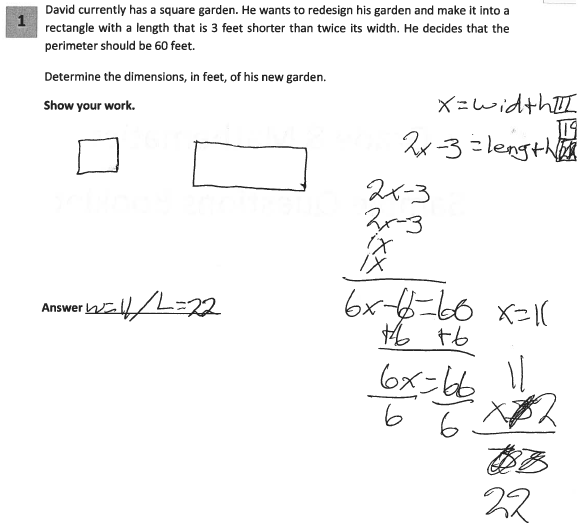 1
David currently has a square garden. He wants to redesign his garden and make it into a
rectangle with a length that is 3 feet shorter than twice its width. He decides that the
perimeter should be 60 feet.
Determine the dimensions, in feet, of his new garden.
Show your work.
x=width 11
2x-3=length 19
2x-3
2x-3
1x
1x
6x-6=60 x=11
+6 +6
6x=66 11
6 6 x 2
22
Answer w=11/L=22